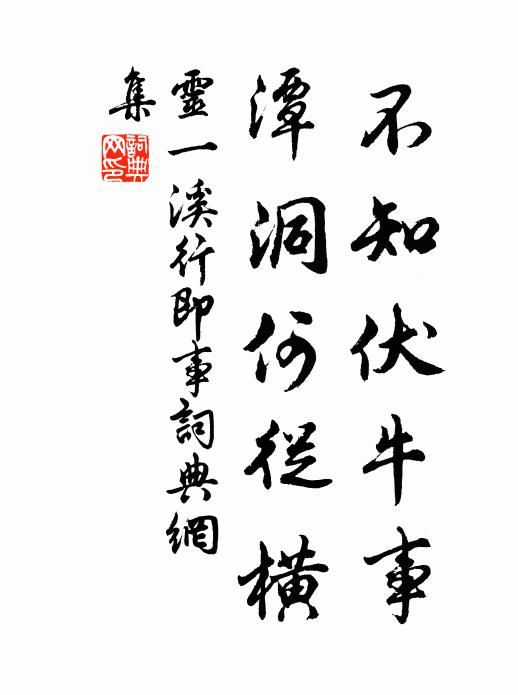 不知伏牛事
潭洞何從橫
靈一溪行即事詞典網
集
詞典
网印